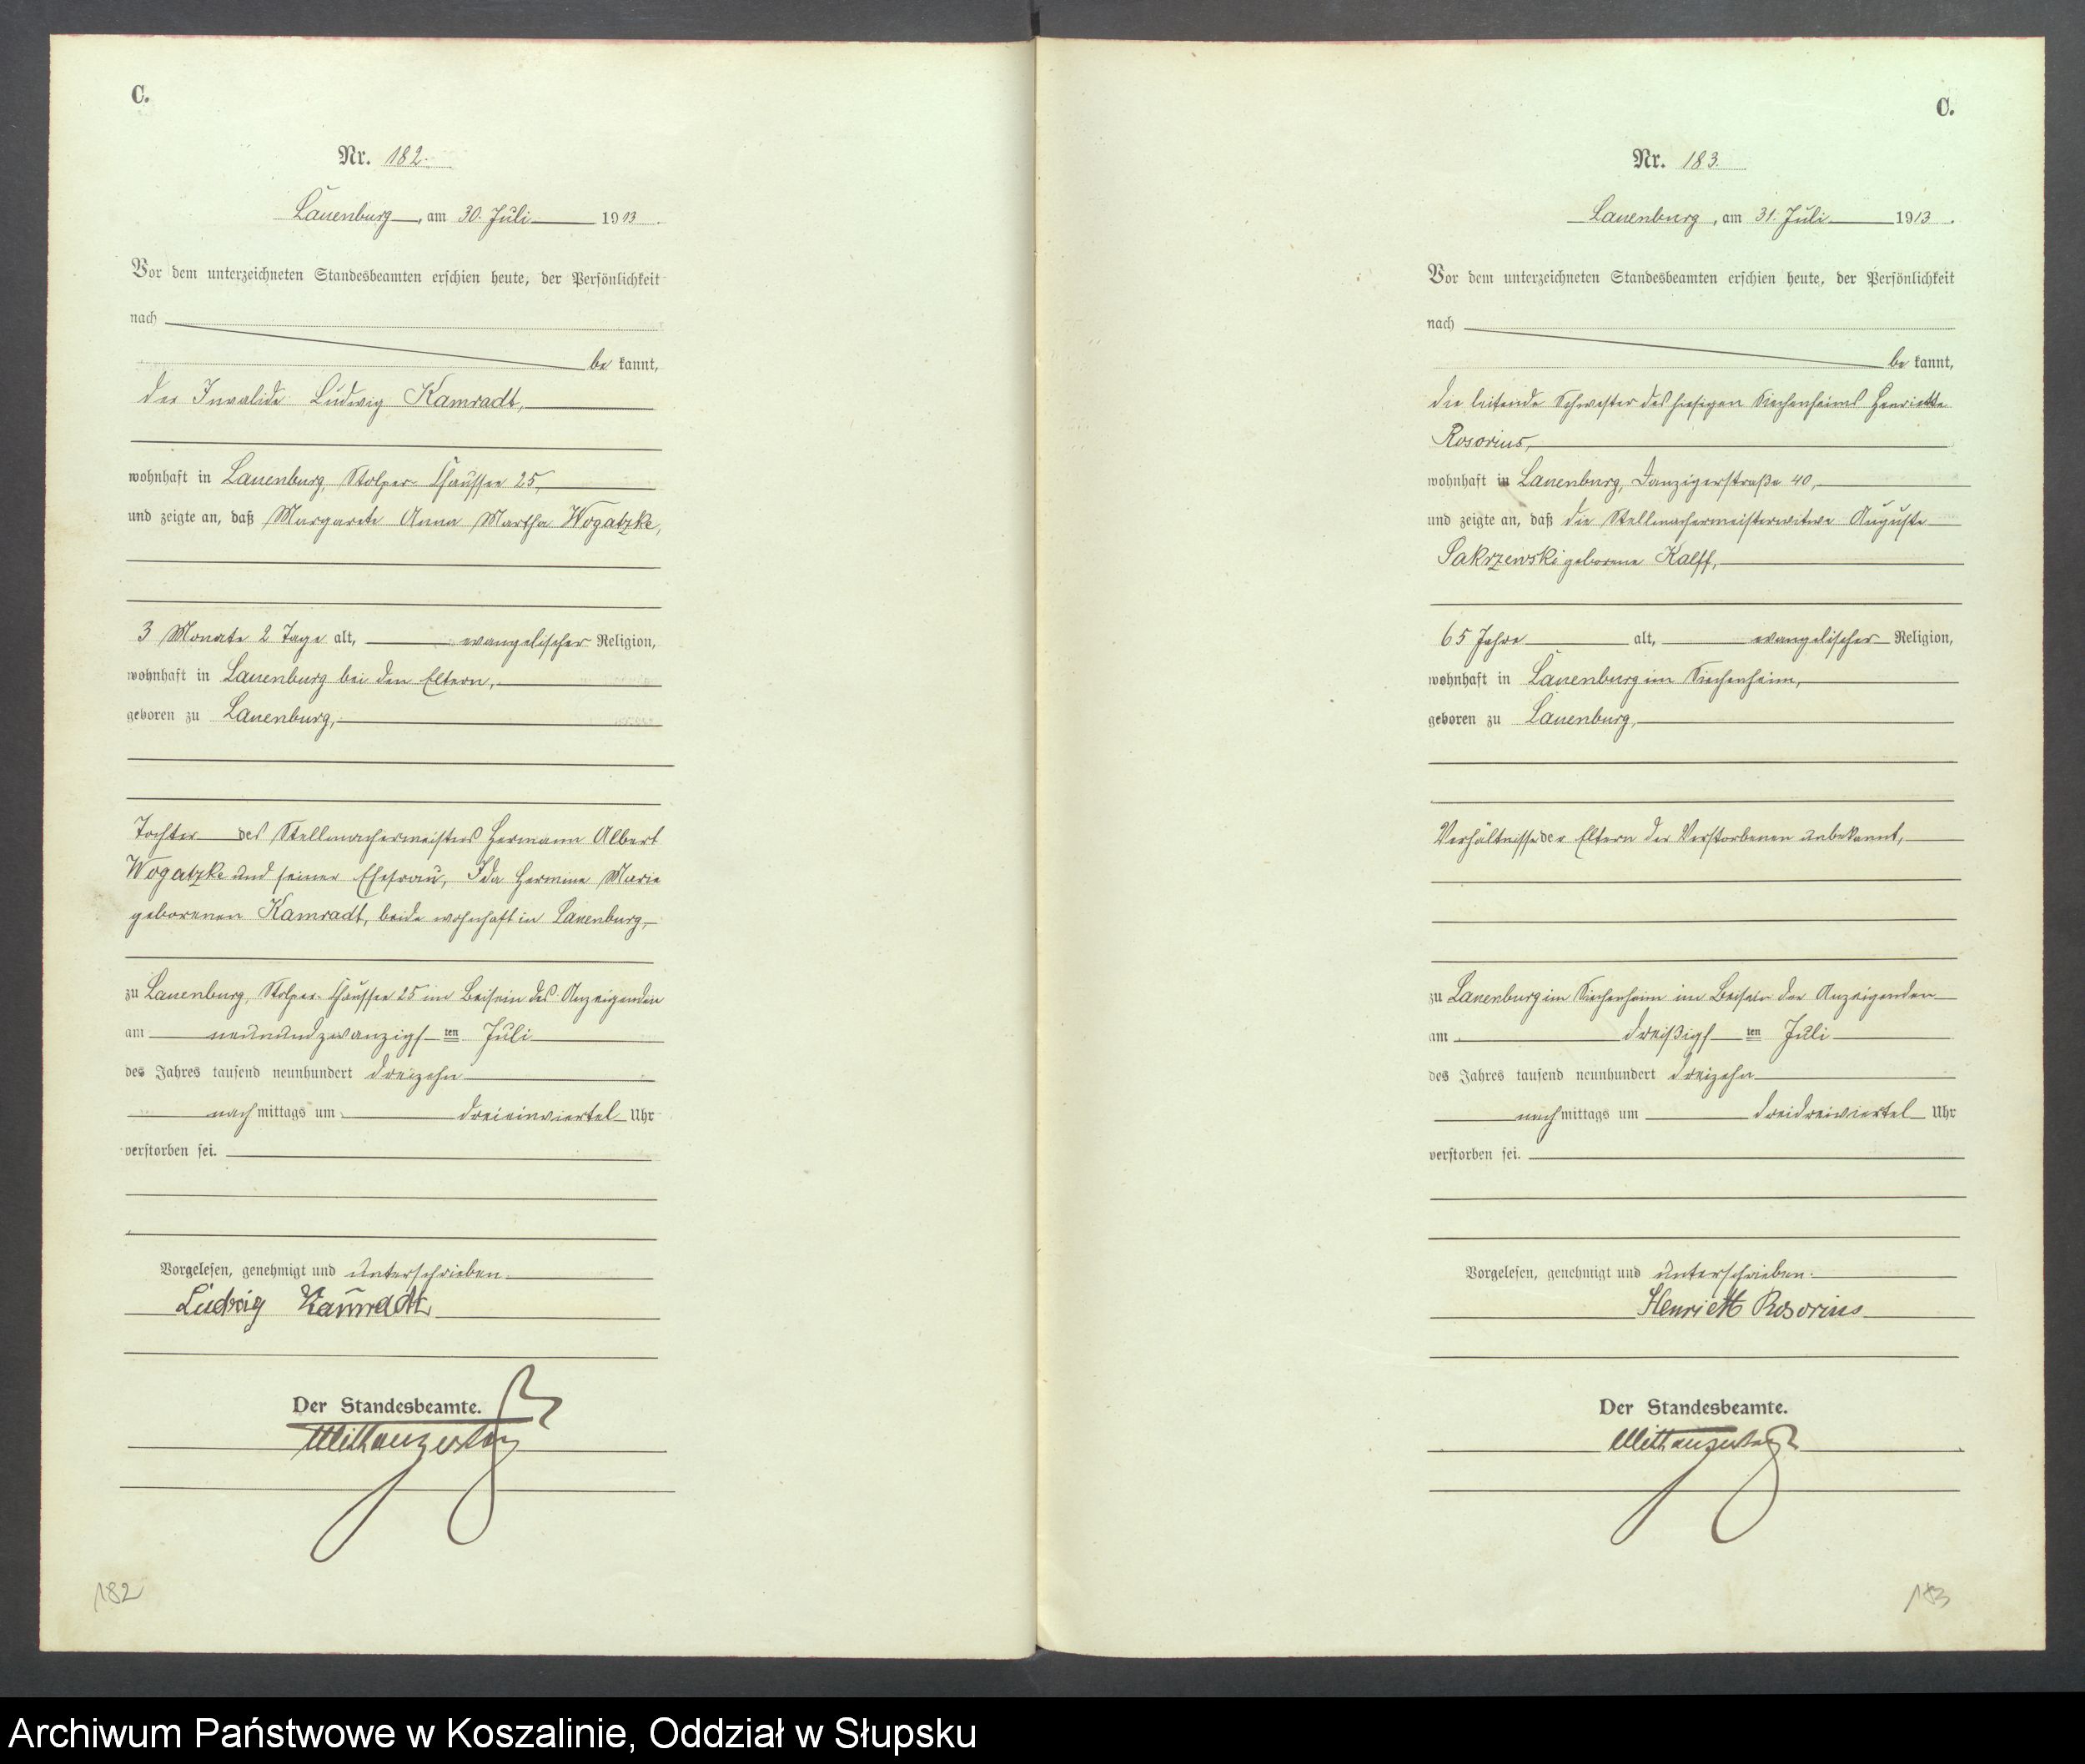 C.
Nr. 182.
Lauenburg, am 30. Juli 1913.
Vor dem unterzeichneten Standesbeamten erschien heute, der Persönlichkeit
nach
be kannt,
der Invalide Ludwig Kamradt,
wohnhaft in Lauenburg, Stolper-Chaussee 25,
und zeigte an, daß Margarete Anna Martha Wogatzke,
3 Monate 2 Tage alt, evangelischer Religion,
wohnhaft in Lauenburg bei den Eltern,
geboren zu Lauenburg,
Tochter des Stellmachermeisters Hermann Albert
Wogatzke und seiner Ehefrau, Ida Hermine Marie
geborenen Kamradt, beide wohnhaft in Lauenburg,
zu Lauenburg, Stolper-Chaussee 25 im Beisein des Anzeigenden
am neunundzwanzigs ten Juli
des Jahres tausend neunhundert dreizehn
nach mittags um dreieinviertel Uhr
verstorben sei.
Vorgelesen, genehmigt und unterschrieben.
Ludwig Kamradt
Der Standesbeamte.
182
C.
Nr. 183.
Lauenburg, am 31. Juli 1913.
Vor dem unterzeichneten Standesbeamten erschien heute, der Persönlichkeit
nach
be kannt,
die leitende Schwester des hiesigen Siechenheims Henriette
Rosorius,
wohnhaft in Lauenburg, Danzigerstraße 40,
und zeigte an, daß die Stellmachermeisterwitwe Auguste
Sakrzewski geborene Kalff,
65 Jahre alt, evangelischer Religion,
wohnhaft in Lauenburg im Siechenheim,
geboren zu Lauenburg,
Verhältnisse der Eltern der Verstorbenen unbekannt,
zu Lauenburg im Siechenheim im Beisein der Anzeigenden
am dreißigs ten Juli
des Jahres tausend neunhundert dreizehn
nach mittags um dreidreiviertel Uhr
verstorben sei.
Vorgelesen, genehmigt und unterschrieben.
Henriett Rosorius
Der Standesbeamte.
183
Archiwum Państwowe w Koszalinie, Oddział w Słupsku